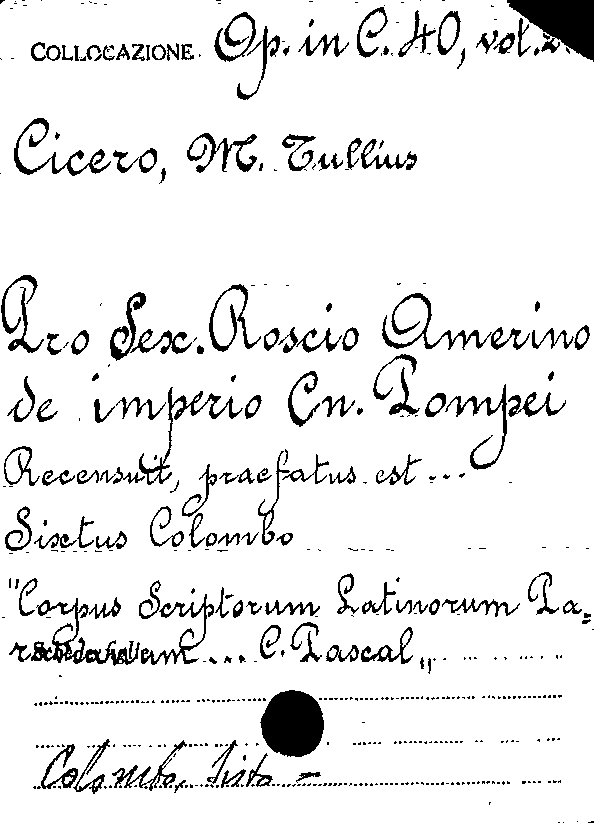 COLLOCAZIONE Op. in C. 40, vol.
Cicero, M. Tullius
Pro Sex. Roscio Amerino
de imperio Cn. Pompei
Recensuit, praefatus est ...
Sixtus Colombo
"Corpus Scriptorum Latinorum Pa=
ravianum ... C. Pascal„
Colombo, Sisto =